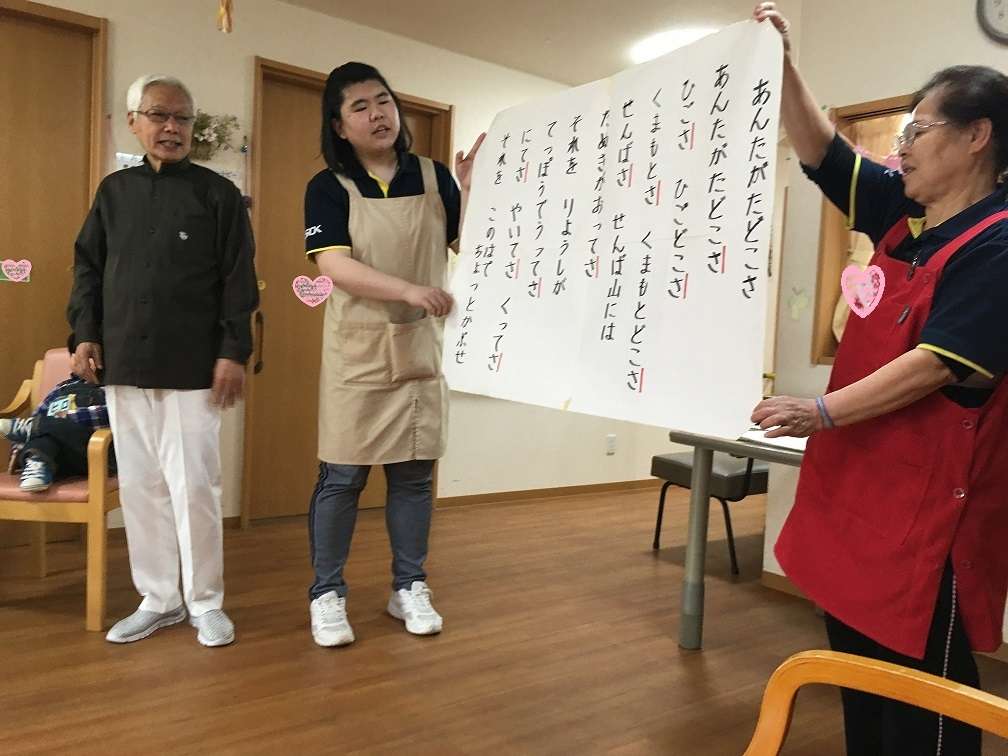 あんたがたどこさ
あんたがたどこさ
ひごさ ひごどこさ
くまもとさ くまもとどこさ
せんばさ せんば山には
たぬきがおってさ
それを りようしが
てっぽうでうってさ
にてさ やいてさ くってさ
それを このはで
ちょっとかぶせ